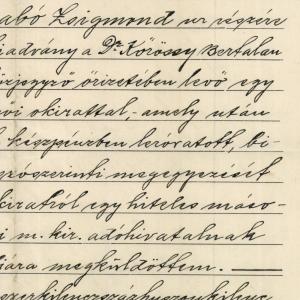 abó Zsigmond ur részére
iadvány a Dr. Körössy Bertalan
őrizetében levő egy
vi okirattal,- amely után
készpénzben lerovatott, bi-
szószerinti megegyezését
kiratról egy hiteles máso-
i m. kir. adóhivatalnak
megküldöttem. ———